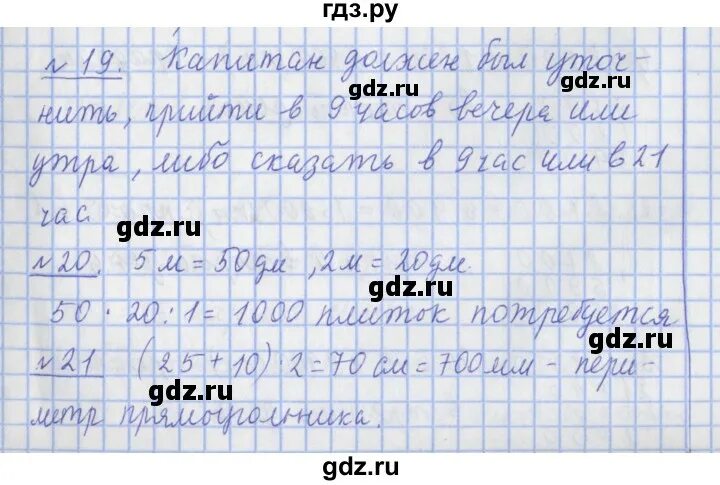 гдз.ру
№ 19. Капитан должен был уточ-
gdz.ru
нить, прийти в 9 часов вечера или
gdz.ru
утра, либо сказать в 9 час или в 21
час.
gdz.ru
№ 20. 5 м = 50 дм, 2 м = 20 дм.
gdz.ru
50 · 20 : 1 = 1000 плиток потребуется
gdz.ru
№ 21 (25 + 10) · 2 = 70 см = 700 мм - пери-
gdz.ru
метр прямоугольника.
gdz.ru
gdz.ru